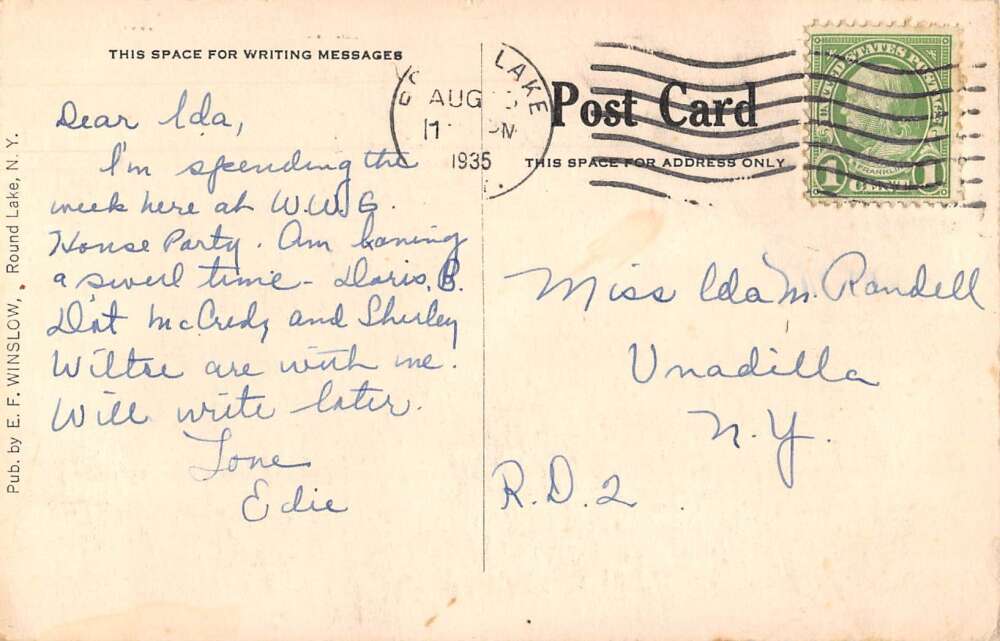 THIS SPACE FOR WRITING MESSAGES
Dear Ida,
I'm spending the
week here at W.W.G.
House Party. Am having
a swell time - Doris, B.
Dot McCredy and Shirley
Wiltse are with me.
Will write later.
Love
Edie
Pub. by E. F. WINSLOW, Round Lake, N. Y.
LAKE
AUG
1935
Post Card
THIS SPACE FOR ADDRESS ONLY
UNITED STATES POSTAGE
FRANKLIN
1 CENT 1
Miss Ida M. Randell
Unadilla
N.Y.
R.D.2